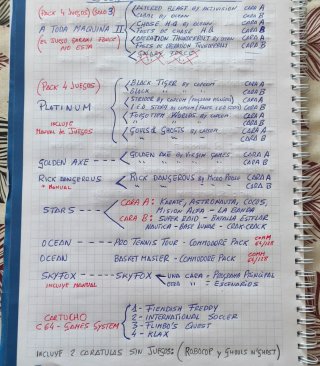 (PACK 4 JUEGOS) (SOLO 3)
BLASTED BLAST BY ACTIVISION CARA A
CABAL BY OCEAN CARA B
A TODA MAQUINA II
CHASE H.Q. BY OCEAN CARA A
TESTS OF CHASE H.Q. CARA B
(EL JUEGO
OPERATION THUNDERBOLT BY OCEAN CARA A
NO ESTA
TESTS OF OPERATION THUNDERBOLT CARA B
(PACK 4 JUEGOS)
BLACK TIGER BY CAPCOM CARA A
BLACK " " CARA B
PLATINUM
STRIDER BY CAPCOM CARA A
BY CAPCOM CARA B
FORGOTTEN WORLDS BY CAPCOM CARA A
" " CARA B
INCLUYE
MANUAL DE JUEGOS
GOULS'N GHOSTS BY CAPCOM CARA A
" " CARA B
GOLDEN AXE
GOLDEN AXE BY VIRGIN GAMES CARA A
" " CARA B
RICK DANGEROUS
+ MANUAL
RICK DANGEROUS BY MICRO PROSE CARA A
" " CARA B
STARS
CARA A: KARATE, ASTRONAUTA, COCOS,
MISION ALFA - LA BANDA
CARA B: SUPER ROID - BATALLA ESTELAR
NAUTICA - BASE LUNAR - CRAK-CROCK
OCEAN PRO TENNIS TOUR - COMMODORE PACK COMM 64/128
OCEAN BASKET MASTER - COMMODORE PACK COMM 64/128
SKYFOX SKYFOX UNA CARA - PROGRAMA PRINCIPAL
INCLUYE MANUAL
OTRA " - ESCENARIOS
CARTUCHO
C64 - GAMES SYSTEM
1 - FIENDISH FREDDY
2 - INTERNATIONAL SOCCER
3 - FLIMBO'S QUEST
4 - KLAX
INCLUYE 2 CARATULAS SIN JUEGOS: (ROBOCOP Y GHOULS N'GHOST)